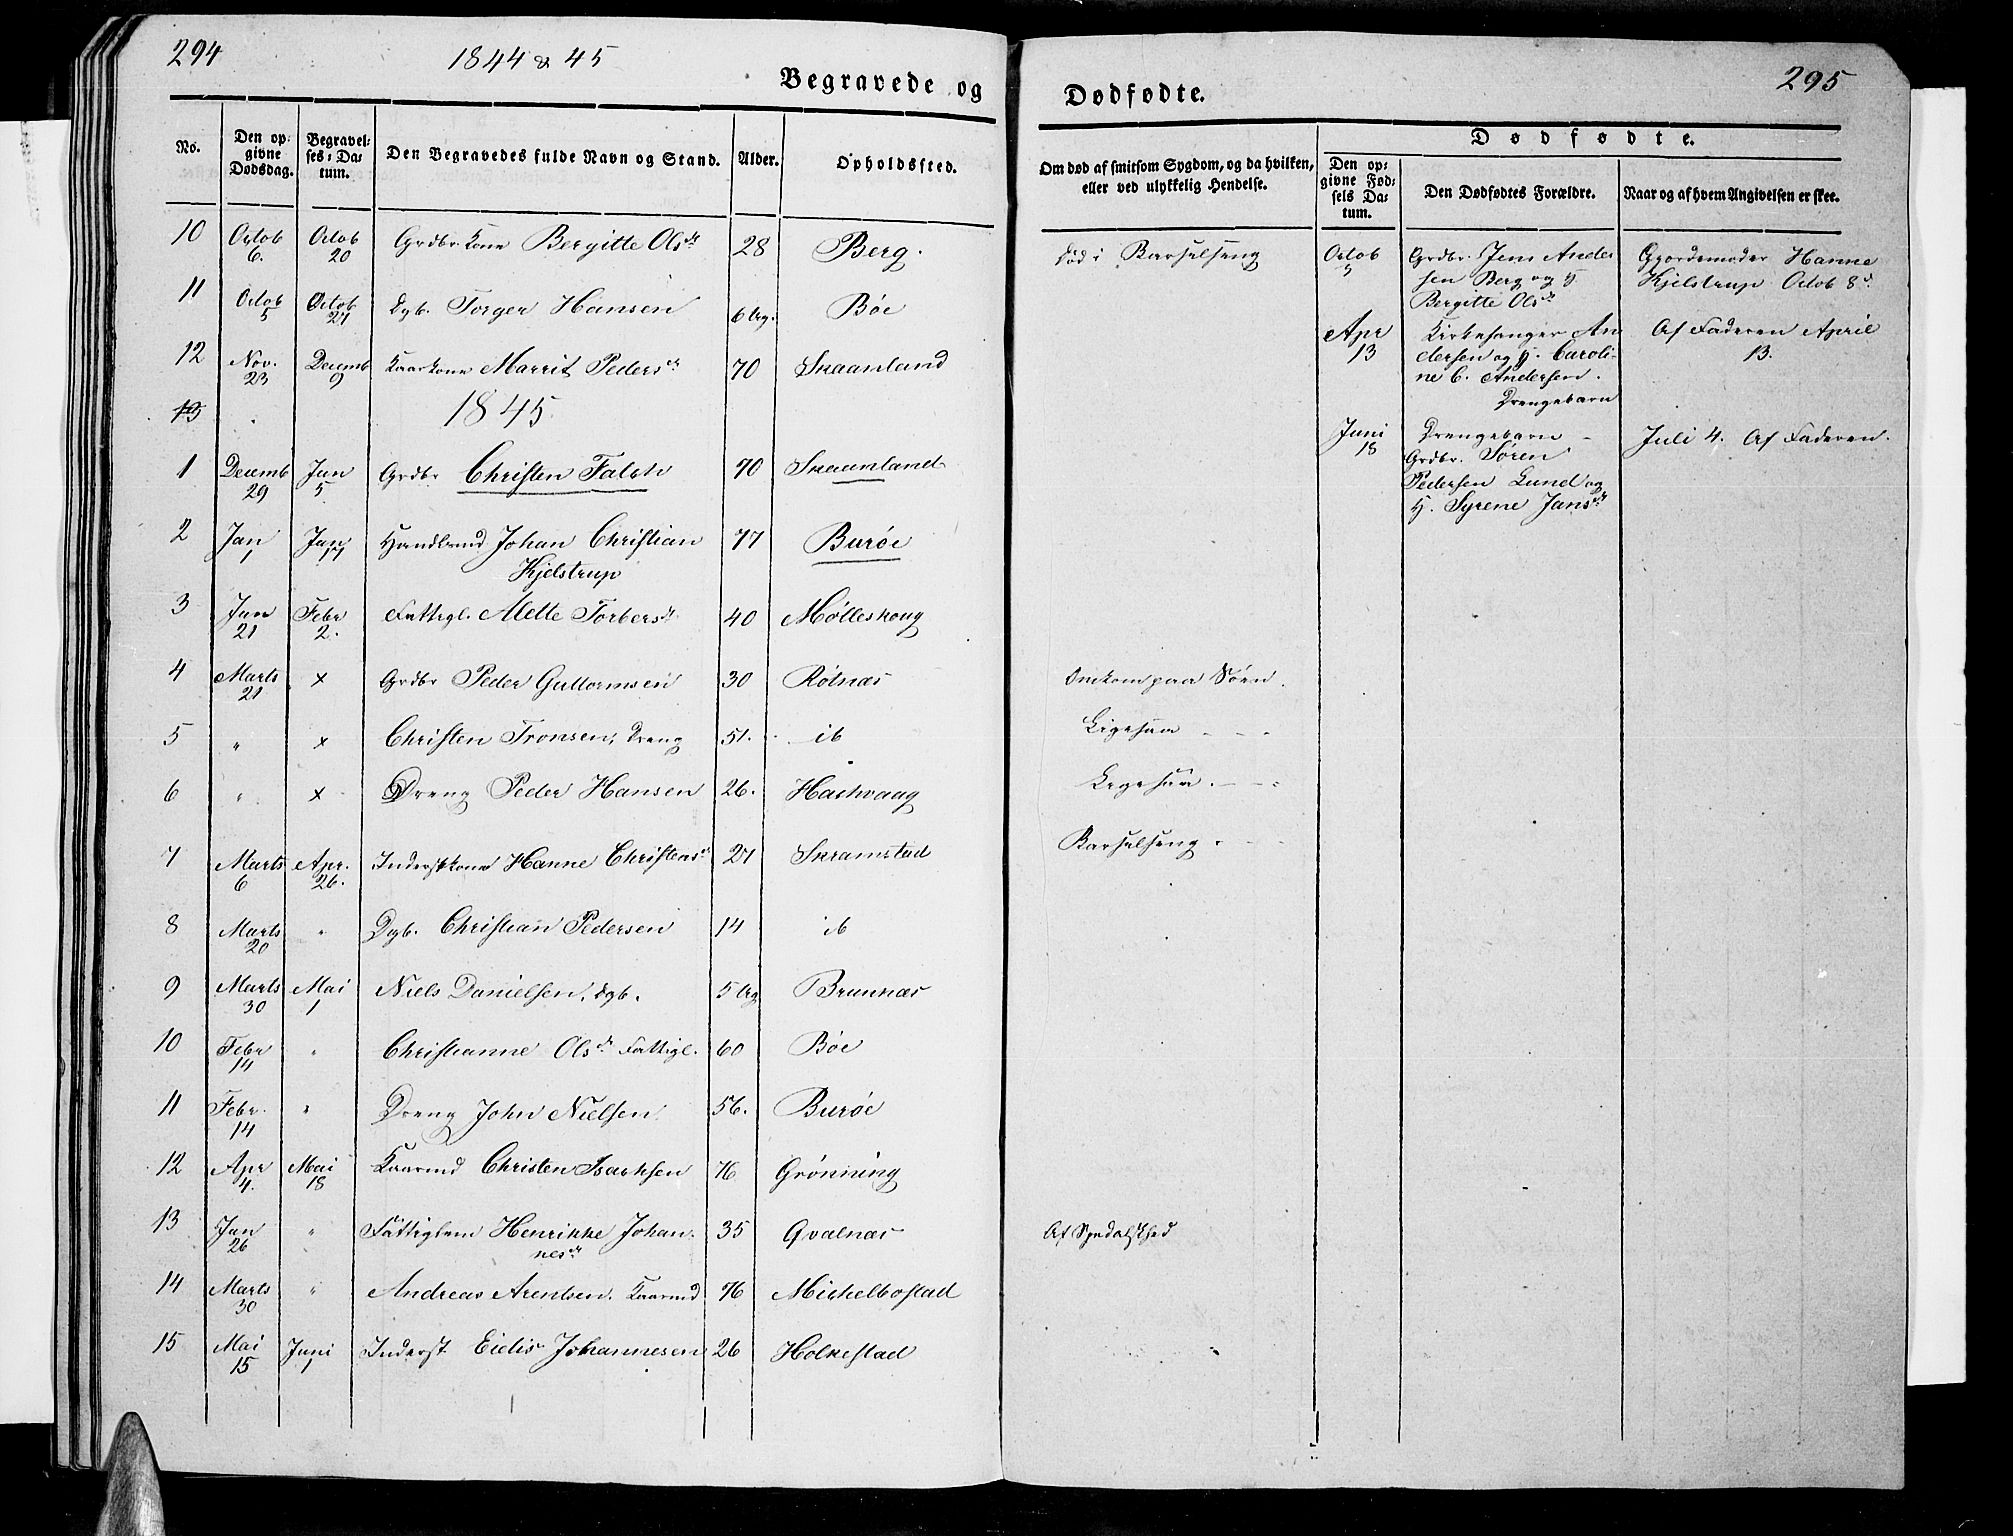 294
1844 & 45
Begravede og
No.
Den opgivne Dødsdag.
Begravelses-Datum.
Den Begravedes fulde Navn og Stand.
Alder.
Opholdssted.
10 Octob 6. Octob 20 Grdbr. Kone Bergitte Olsdr 28 Berg.
11 Octob 5 Octob 27 Dgb. Torger Hansen 6 Ug. Bøe
12 Nov. 23 Decemb 9 Kaarkone Marrit Pedersdr 70 Skaanland
13 1845.
1 Decemb 29 Jan 5 Grdbr Christen Falch 70 Skaanland
2 Jan 1 Jan 17 Handlsmd Johan Christian 77 Burøe
Kjelstrup
3 Jan 21 Febr 2. Fattigl. Alette Torbersdr 40 Mølleskong
4 Marts 21 x Grdbr Peder Guttormsen 30 Røtnæs
5 " x Christen Tronsen, Dreng 51. ib
6 " x Dreng Peder Hansen 26. Hachvaag
7 Marts 6 Apr. 26. Inderstkone Hanne Christensdr 27 Skramstad
8 Marts 20 " Dgb. Christian Pedersen 14 ib
9 Marts 30 Mai 1 Niels Danielsen, Dgb. 5 Ug Brunnæs
10 Febr 14 " Christianne Olsdr Fattigl. 60 Bøe
11 Febr. 14 " Dreng John Nielsen 56. Burøe
12 Apr 4. Mai 18 Kaarmd Christen Isachsen 76 Grønning
13 Jan 26 " Fattiglem Henrikke Johan- 35 Qvalnæs
nesdr
14 Marts 30 " Andreas Arentsen. Kaarmd 76 Michelbostad
15 Mai 15 Juni 1 Inderst Eidis Johannesen 26 Holkestad
295
Dødfødte.
Om død af smitsom Sygdom, og da hvilken,
eller ved ulykkelig Hendelse.
Dødfødte.
Den opgivne Fødsels Datum.
Den Dødfødtes Forældre.
Naar og af hvem Angivelsen er skee.
Død i Barselseng
Octob 5 Grdbr. Jens Ander Gjordemoder Hanne
sen Berg og H. Kjelstrup Octob 8d.
Bergitte Olsdr
Apr 13 Kirkesanger An Af Faderen April
dersen og H. Caroli- 13.
ne C. Andersen.
Drengebarn
Juni 18 Drengebarn – Juli 4. Af Faderen.
Grdbr. Søren
Pedersen Lund og
H. Syrene Jansdr
Omkom paa Søen.
Ligesaa - - -
Ligesaa. - - -
Barselseng - - -
Af Spedalskhed